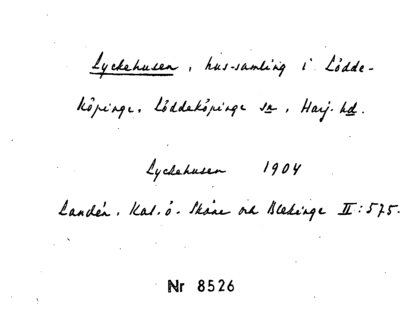 Lyckehusen, hus-samling i Lödde-
köpinge, Löddeköpinge sn, Harj. hd.
Lyckehusen 1904
Landén, Kal. ö. Skåne och Blekinge II:575.
Nr 8526